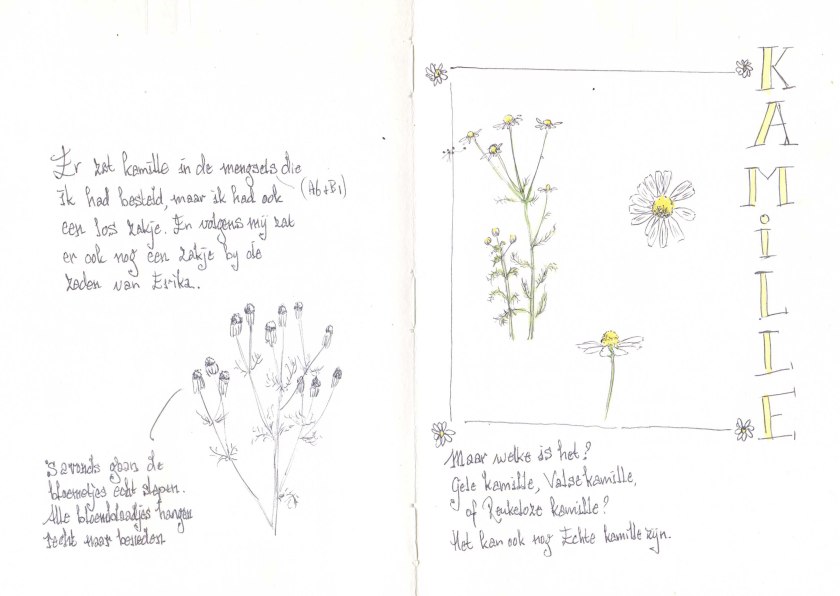 Er zat kamille in de mengsels die
ik had besteld, maar ik had ook (A6+B1)
een los zakje. En volgens mij zat
er ook nog een zakje by de
zaden van Erika.
S avonds gaan de
bloemetjes echt slapen.
Alle bloemblaadjes hangen
recht naar beneden
KAMiLLE
Maar welke is het?
Gele kamille, Valse kamille,
of Reukeloze kamille?
Het kan ook nog Echte kamille zijn.